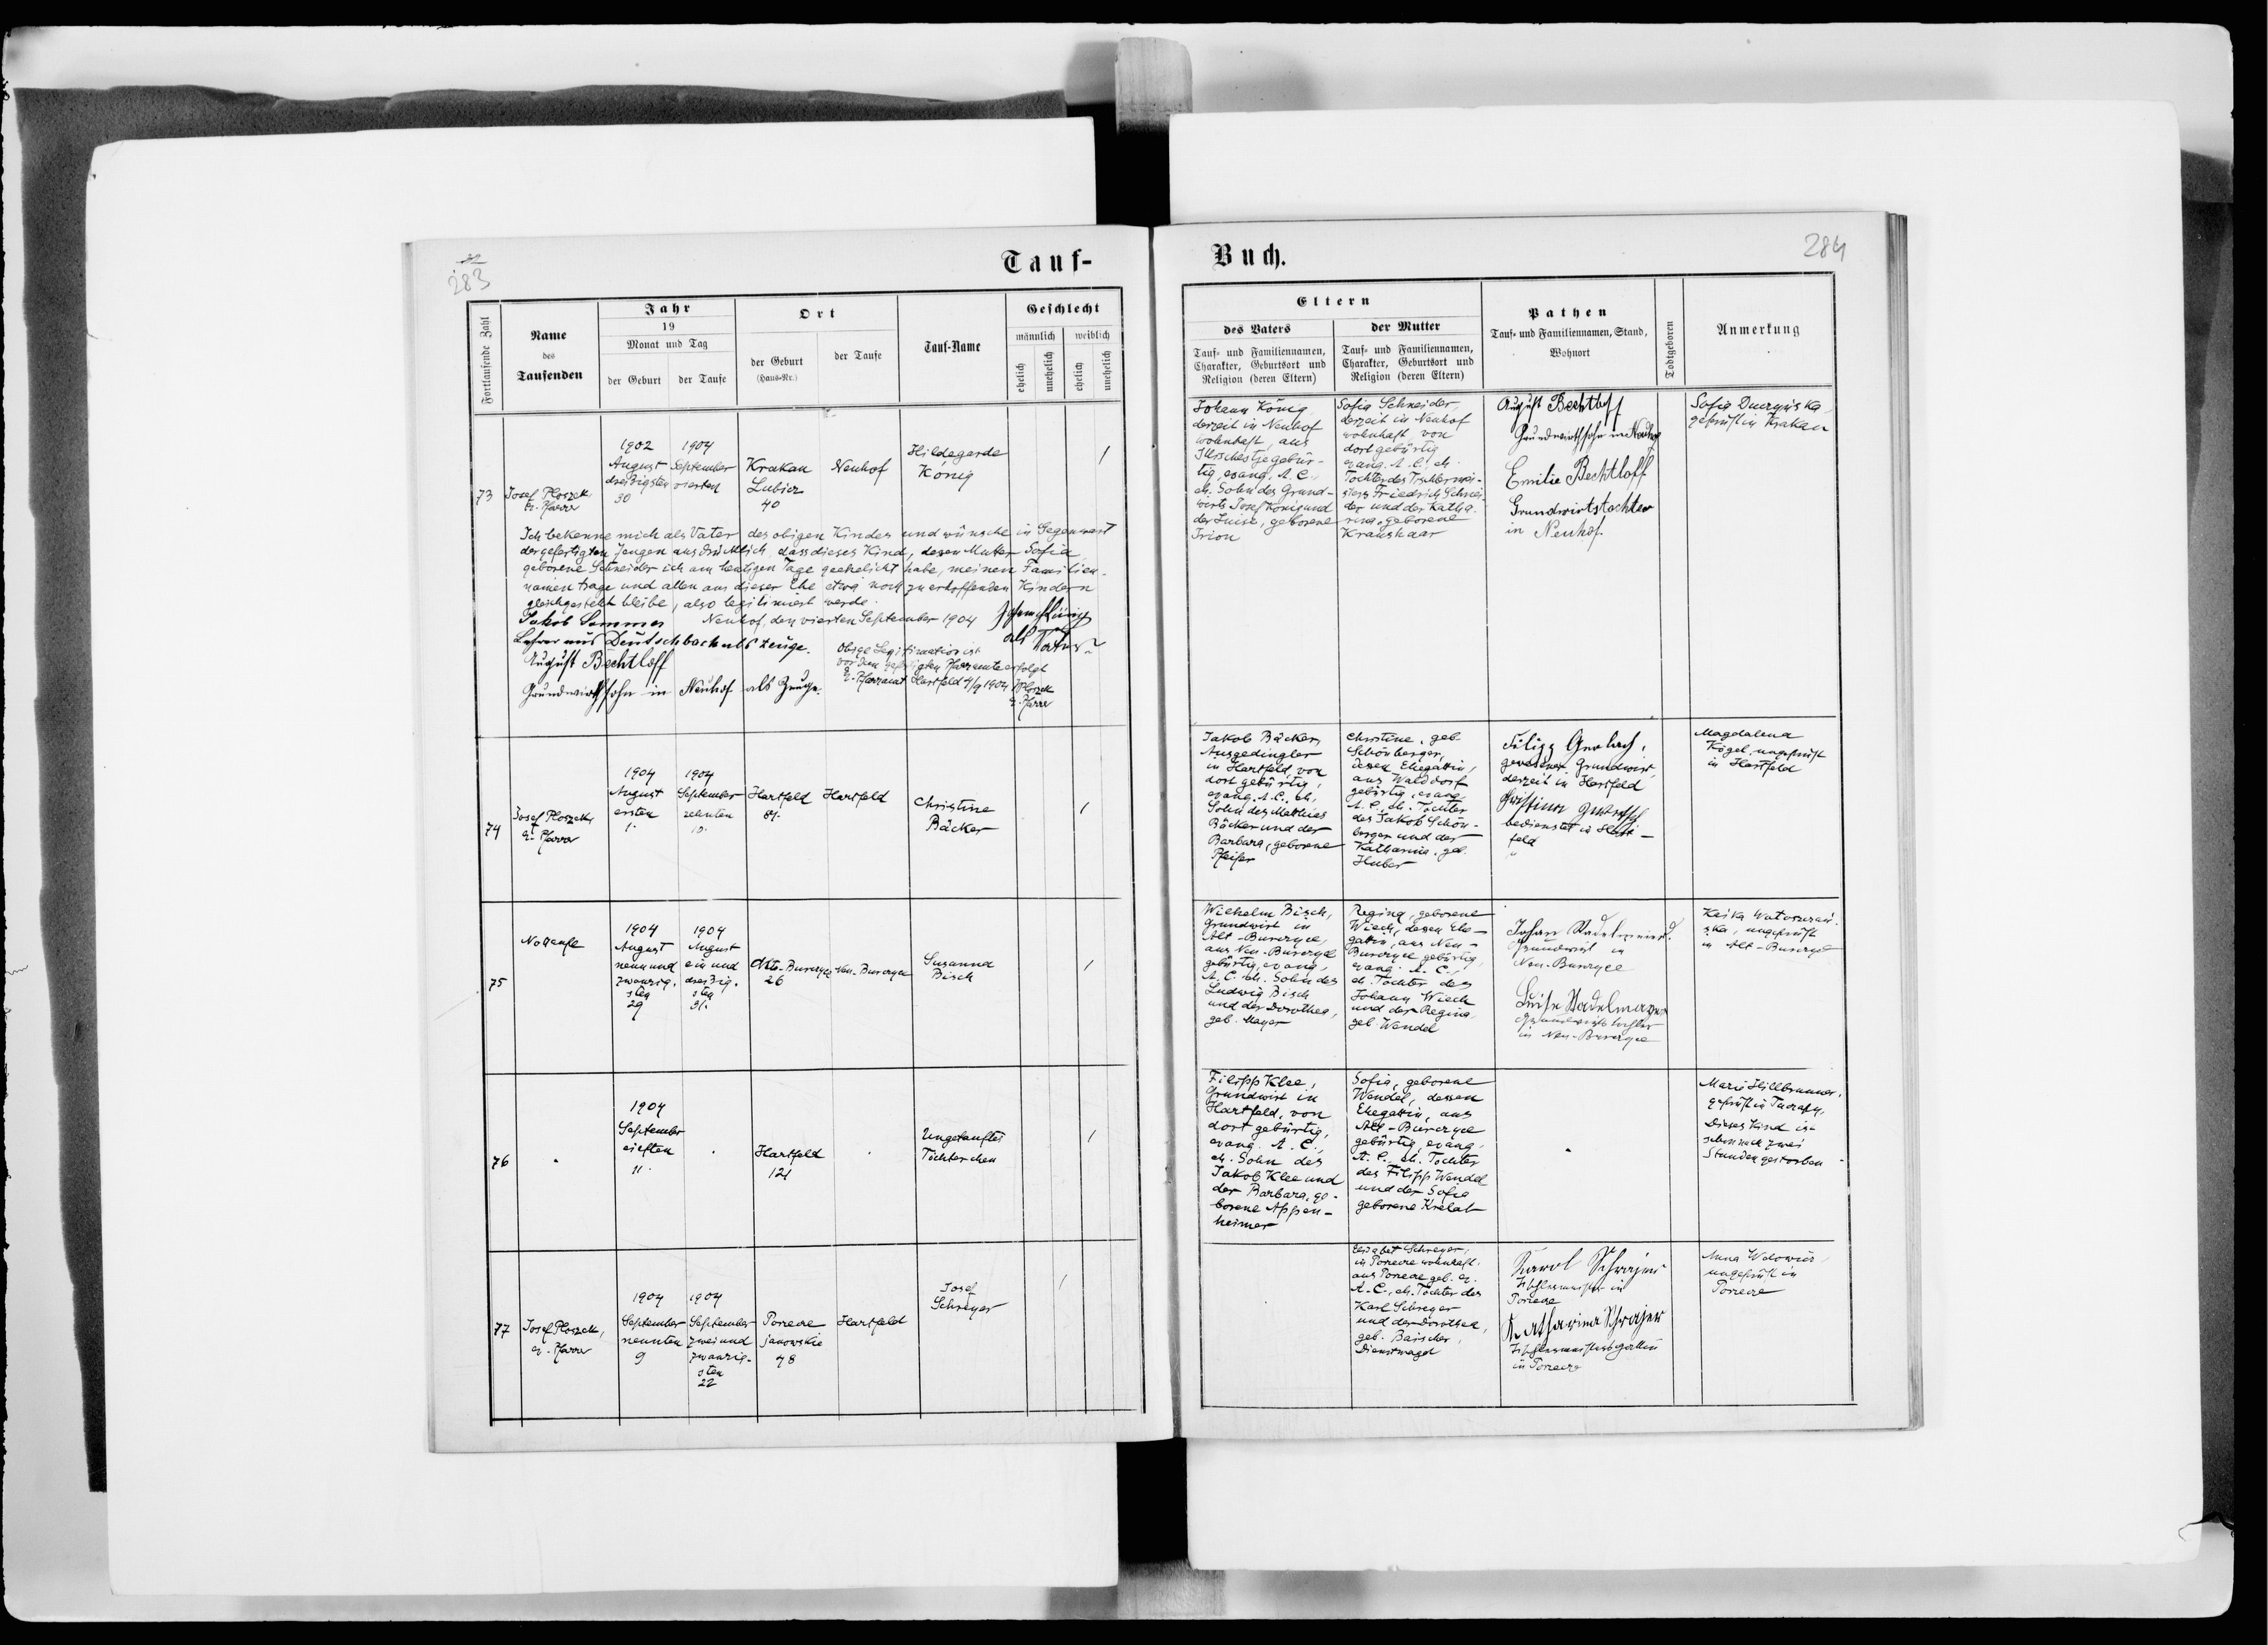 283
Tauf-
Fortlaufende Zahl
Name
des
Taufenden
Jahr
19
Monat und Tag
der Geburt
der Taufe
Ort
der Geburt
(Haus-Nr.)
der Taufe
Tauf-Name
Geschlecht
männlich
weiblich
ehelich
unehelich
ehelich
unehelich
73
Josef Ploszek
ev. Pfarrer
1902
August
dreißigsten
30
1904
September
vierten
Krakau
Lubicz
40
Neuhof
Hildegarde
König
/
Ich bekenne mich als Vater des obigen Kindes und wünsche in Gegenwart
der gefertigten Zeugen ausdrücklich, dass dieses Kind, dessen Mutter Sofia
geborene Schneider ich am heutigen Tage geehelicht habe, meinen Familien-
namen trage und allen aus dieser Ehe etwa noch zu erhoffenden Kindern
gleichgestellt bleibe, also legitimiert werde.
Neuhof, den vierten September 1904
Johann König
als Vater
Jakob Sommer
Lehrer aus Deutschbach als Zeuge.
August Bechtloff
Grundwirthssohn in Neuhof als Zeuge.
Obige Legitimation ist
vor dem gefertigten Pfarramte erfolgt
Ev. Pfarramt Hartfeld 4/9 1904 JPloszek
ev. Pfarrer
74
Josef Ploszek,
ev. Pfarrer
1904
August
ersten
1.
1904
September
zehnten
10.
Hartfeld
84.
Hartfeld
Christine
Bäcker
/
75
Nottaufe
1904
August
neunund
zwanzig-
sten
29
1904
August
ein und
dreißig-
sten
31.
Alt-Burczyce
26
Neu-Burczyce
Susanna
Bisch
/
76
1904
September
eilften
11.
Hartfeld
121
Ungetauftes
Töchterchen
/
77
Josef Ploszek,
ev. Pfarrer
1904
September
neunten
9
1904
September
zweiund
zwanzig-
sten
22
Porzecze
janowskie
48
Hartfeld
Josef
Schreyer
/
Buch.
284
Eltern
des Vaters
Tauf- und Familiennamen,
Charakter, Geburtsort und
Religion (deren Eltern)
der Mutter
Tauf- und Familiennamen,
Charakter, Geburtsort und
Religion (deren Eltern)
Pathen
Tauf- und Familiennamen, Stand,
Wohnort
Todtgeboren
Anmerkung
Johann König,
derzeit in Neuhof
wohnhaft, aus
gebür-
tig, evang. A. C.,
eh. Sohn des Grund-
wirts Josef König und
der Luise, geborene
Irion
Sofia Schneider,
derzeit in Neuhof
wohnhaft, von
dort gebürtig
evang. A. C., eh.
Tochter des Tischlermei-
sters Friedrich Schnei-
der und der Katha-
rina, geborene
Kraushaar
August Bechtloff
Grundwirthssohn in Neuhof
Emilie Bechtloff
Grundwirtstochter
in Neuhof.
Sofia
geprüft in Krakau
Jakob Bäcker,
Ausgedingler
in Hartfeld, von
dort gebürtig,
evang. A. C., eh.
Sohn des Mathias
Bäcker und der
Barbara, geborene
Pfeifer
Christine, geb.
Schönberger,
dessen Ehegattin,
aus Walddorf
gebürtig, evang.
A. C., eh. Tochter
des Jakob Schön-
berger und der
Katharina, geb.
Huber
Filipp Gerlach,
gewesener Grundwirt,
derzeit in Hartfeld
bedienstet in Hart-
feld
Magdalena
Kögel, ungeprüft
in Hartfeld
Wilhelm Bisch,
Grundwirt in
Alt-Burczyce,
aus Neu-Burczyce
gebürtig, evang.
A. C., eh. Sohn des
Ludwig Bisch
und der Dorothea,
geb. Mayer
Regina, geborene
Wiech, dessen Ehe-
gattin, aus Neu-
Burczyce gebürtig,
evang. A. C.,
eh. Tochter des
Johann Wiech
und der Regina,
geb. Wendel
Johan Stadelmeier
Grundwirt in
Neu-Burczyce
Luise Stadelmayer
Grundwirtstochter
in Neu-Burczyce
ungeprüft
in Alt-Burczyce
Filipp Klee,
Grundwirt in
Hartfeld, von
dort gebürtig,
evang. A. C.,
eh. Sohn des
Jakob Klee und
der Barbara, ge-
borene Appen-
heimer
Sofia, geborene
Wendel, dessen
Ehegattin, aus
Alt-Burczyce
gebürtig, evang.
A. C., eh. Tochter
des Filipp Wendel
und der Sofia
geborene Krelat
Marie Hillbrunner,
geprüft in
Dieses Kind ist
schon nach zwei
Stunden gestorben
Elisabet Schreyer,
in Porzecze wohnhaft,
aus Porzecze geb. ev.
A. C., eh. Tochter des
Karl Schreyer
und der Dorothea,
geb. Baischer,
Dienstmagd
Karol Schrajer
Tischlermeister in
Porzecze
Katharina Schrajer
Tischlermeistersgattin
in Porzecze
Anna
ungeprüft in
Porzecze